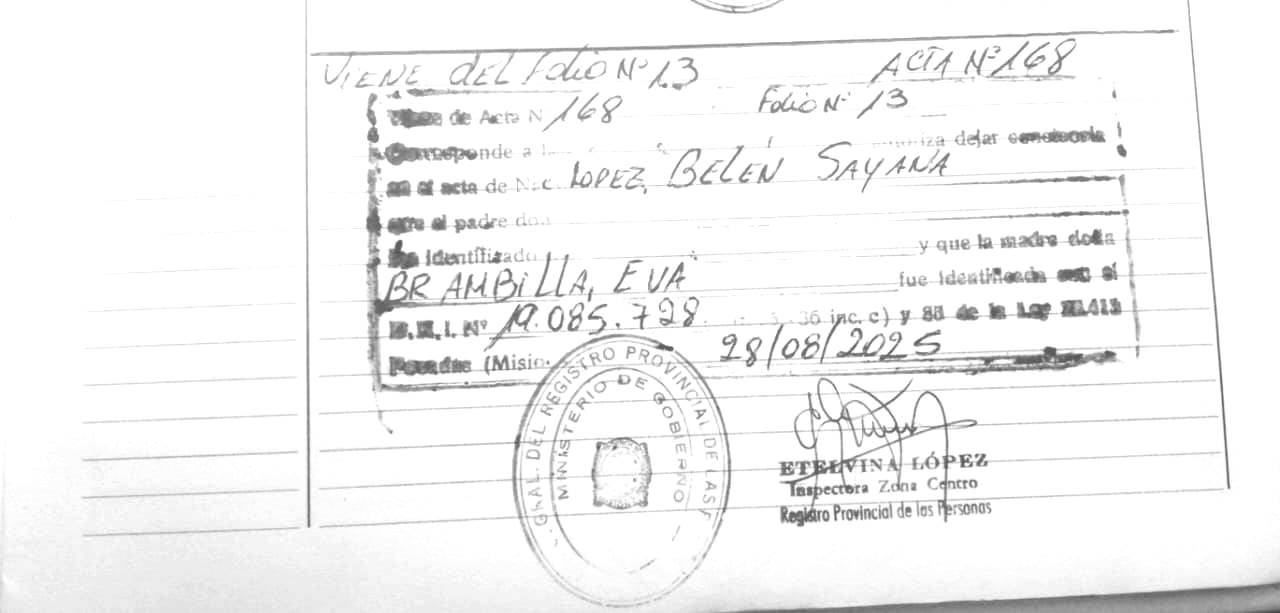 VIENE DEL Folio Nº 13 ACTA Nº 168
de Acta N 168 Folio Nº 13
Corresponde a l iza dejar constancia
en el acta de Nac. LOPEZ, BELÉN SAYANA
que el padre don
Identificado y que la madre doña
BRAMBILLA, EVA fue identificada con el
D.N.I. Nº 19.085.728 36 inc. c) y de la Ley
Posadas (Misio 28/08/2025
GRAL. DEL REGISTRO PROVINCIAL DE LAS P
MINISTERIO DE GOBIERNO
ETELVINA LÓPEZ
Inspectora Zona Centro
Registro Provincial de las Personas